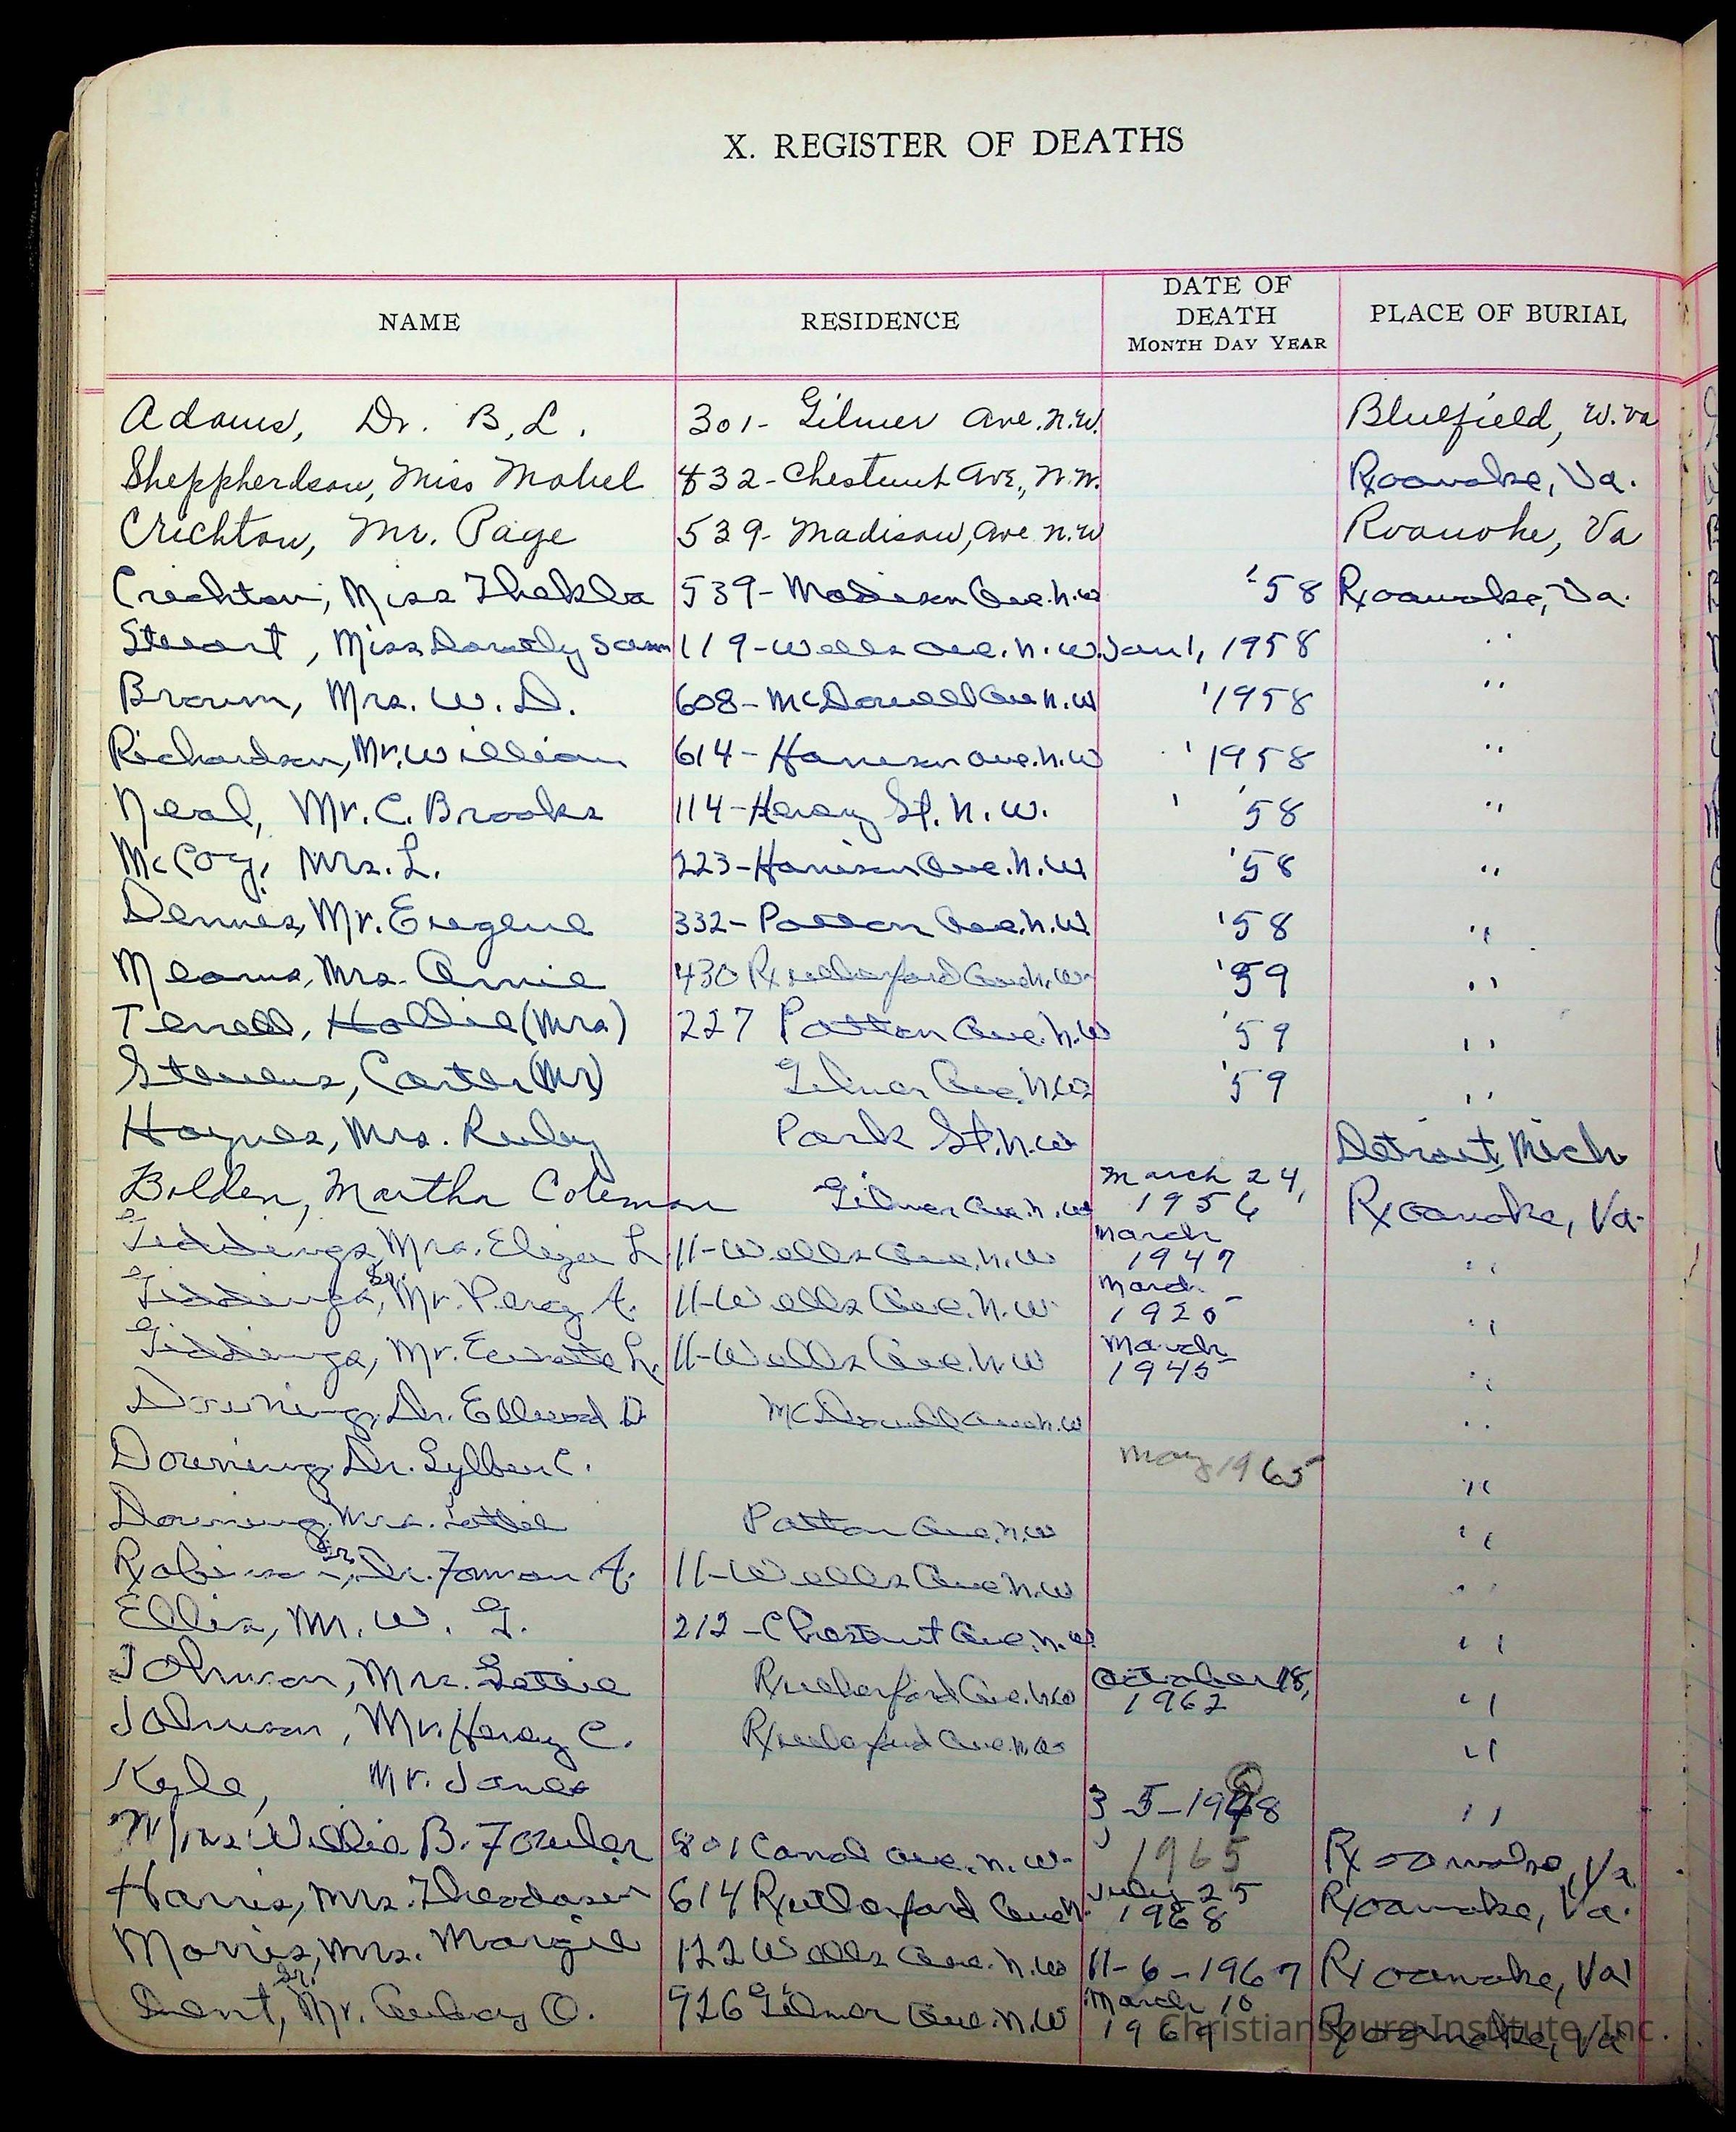 X. REGISTER OF DEATHS
NAME RESIDENCE DATE OF DEATH MONTH DAY YEAR PLACE OF BURIAL
Adams, Dr. B, L. 301- Gilmer Ave. N.W. Bluefield, W. Va
Sheppherdson, Miss Mabel 832- Chestnut Ave., N.W. Roanoke, Va.
Crichton, Mr. Page 539- Madison, Ave N.W Roanoke, Va
Crichton, Miss Thekla 539- Madison Ave. N.W '58 Roanoke, Va.
Stewart, Miss Dorothy 119- Wells Ave. N.W. Jan 1, 1958 "
Brown, Mrs. W. D. 608- McDowell Ave N.W '1958 "
Richardson, Mr. William 614- Harrison Ave. N.W '1958 "
Neal, Mr. C. Brooks 114- Henry St. N.W. '58 "
McCoy, Mrs. L. 223- Harrison Ave. N.W '58 "
Dennes, Mr. Eugene 332- Patton Ave. N.W '58 "
Means, Mrs. Annie 430 Rutherford Ave N.W. '59 "
Terrell, Hollie (Mrs) 227 Patton Ave. N.W '59 "
Stevens, Carter (Mr) Gilmer Ave. N.W '59 "
Haynes, Mrs. Ruby Park St. N.W Detroit, Mich
Bolden, Martha Coleman Gilmer Ave. N.W March 24, 1956 Roanoke, Va.
Giddings, Mrs. Eliza L. 11- Wells Ave. N.W March 1947 "
Giddings, Sr. Mr. Percy A. 11- Wells Ave. N.W March 1920 "
Giddings, Mr. L. 11- Wells Ave. N.W March 1945 "
Downing, Dr. Ellwood D. McDowell Ave N.W "
Downing, Dr. C. May 1965 "
Downing, Mrs. Lottie Patton Ave. N.W "
Robinson, Sr., Dr. A. 11- Wells Ave N.W "
Ellis, Mr. W. G. 212- Chestnut Ave. N.W. "
Johnson, Mrs. Lottie Rutherford Ave. N.W October 18, 1962 "
Johnson, Mr. Henry C. Rutherford Ave. N.W "
Kyle, Mr. James 3-5-1968 "
Mrs. Willie B. Fowler 801 Carrol Ave. N.W. 1965 Roanoke, Va.
Harris, Mrs. 614 Rutherford Ave N. July 25 1968 Roanoke, Va.
Morris, Mrs. Margie 122 Wells Ave. N.W 11-6-1967 Roanoke, Va.
Dent, Sr. Mr. Aubrey O. 926 Gilmer Ave. N.W March 10 1969 Roanoke, Va
Christiansburg Institute, Inc.